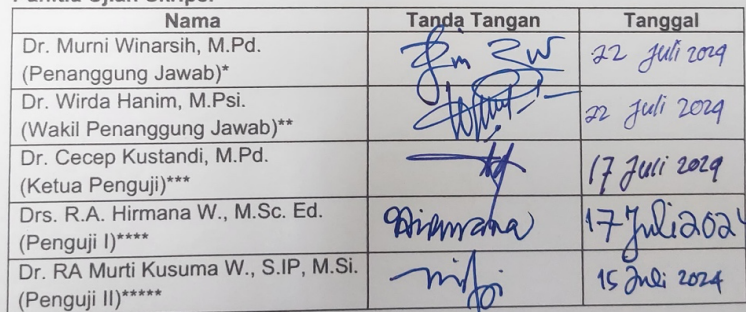 Panitia Ujian Skripsi
Nama Tanda Tangan Tanggal
Dr. Murni Winarsih, M.Pd.
(Penanggung Jawab)* 22 Juli 2024
Dr. Wirda Hanim, M.Psi.
(Wakil Penanggung Jawab)** 22 Juli 2024
Dr. Cecep Kustandi, M.Pd.
(Ketua Penguji)*** 17 Juli 2024
Drs. R.A. Hirmana W., M.Sc. Ed.
(Penguji I)**** 17 Juli 2024
Dr. RA Murti Kusuma W., S.IP, M.Si.
(Penguji II)***** 15 Juli 2024